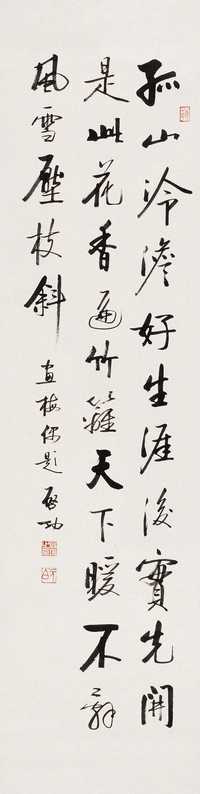 孤山冷澹好生涯後實先開
是此花香遍竹籬天下暖不辭
風雪壓枝斜
畫梅偶題 啓功